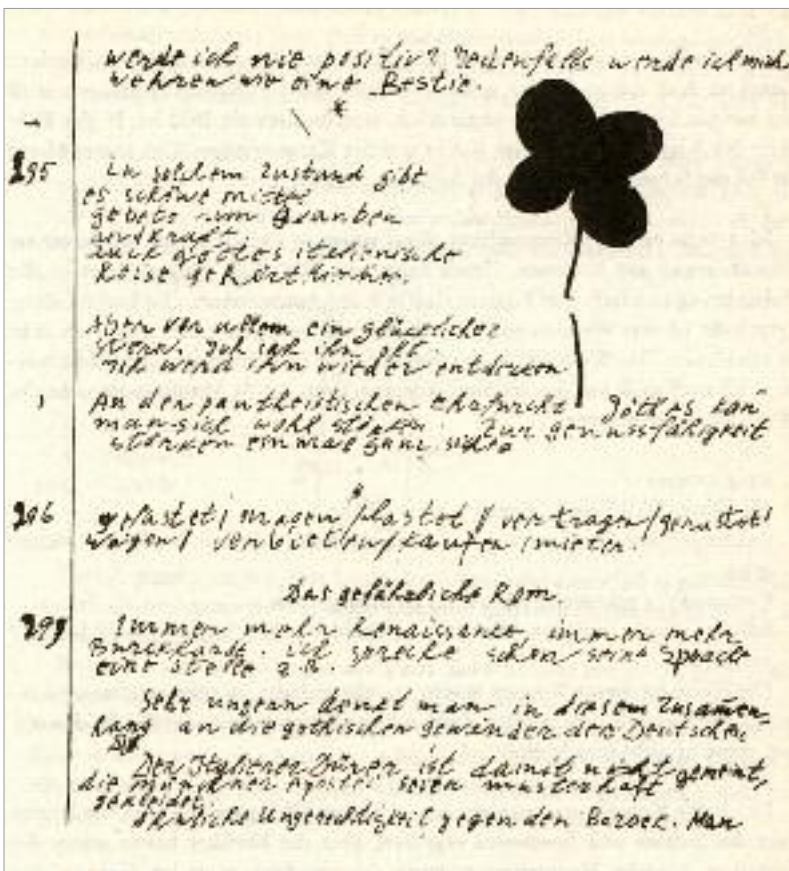 werde ich nie positiv? Jedenfalls werde ich mich
wehren wie eine Bestie.
*
295 In solchem Zustand gibt
es schöne Mittel
Gebete zum Glauben
und Kraft.
Auch Göttes italienische
Reise gehört hierher.
Aber vor allem ein glücklicher
Stern. Ich sah ihn oft
Ich werd ihn wieder entdecken
An der pantheistischen Ehrfurcht Göttes kan̄
man sich wohl stärken. Zur Genussfähigkeit
stärken einmal ganz sicher
296 gefastet/ Magen / / vertragen/
Wagen/ verbieten/ kaufen / mieten.
Das gefährliche Rom
Immer mehr Renaissance, immer mehr
Burckhardt. ich spreche schon seine Sprache
eine Stelle z.B.
Sehr ungern denkt man in diesem Zusam̄en-
hang an die gothischen Gewänder der Deutschen
Der Italiener Dürer ist damit nicht gemeint,
die Münchner Apostel seien musterhaft
gekleidet.
Ähnliche Ungerechtigkeit gegen den Barock. Man